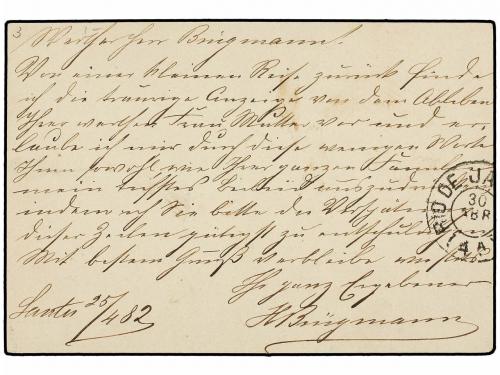 3
Werther Herr Brügmann!
Von einer kleinen Reise zurück finde
ich die traurige Anzeige von dem Ableben
Ihrer werthen Frau Mutter vor und er-
laube ich mir durch diese wenigen Worte
Ihnen sowohl wie Ihrer ganzen Familie
mein tiefstes Beileid auszudrücken
indem ich Sie bitte das Verspäten
dieser Zeilen gütigst zu entschuldigen
Mit bestem Gruß verbleibe
Ihr ganz Ergebener
HBrügmann
Santos 25/4 82
RIO DE JA
30
ABR
4 A